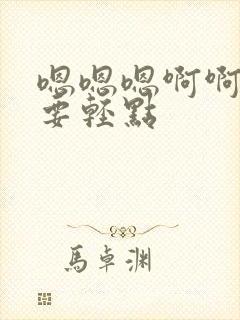 嗯嗯嗯啊啊
要轻點
馬卓渊